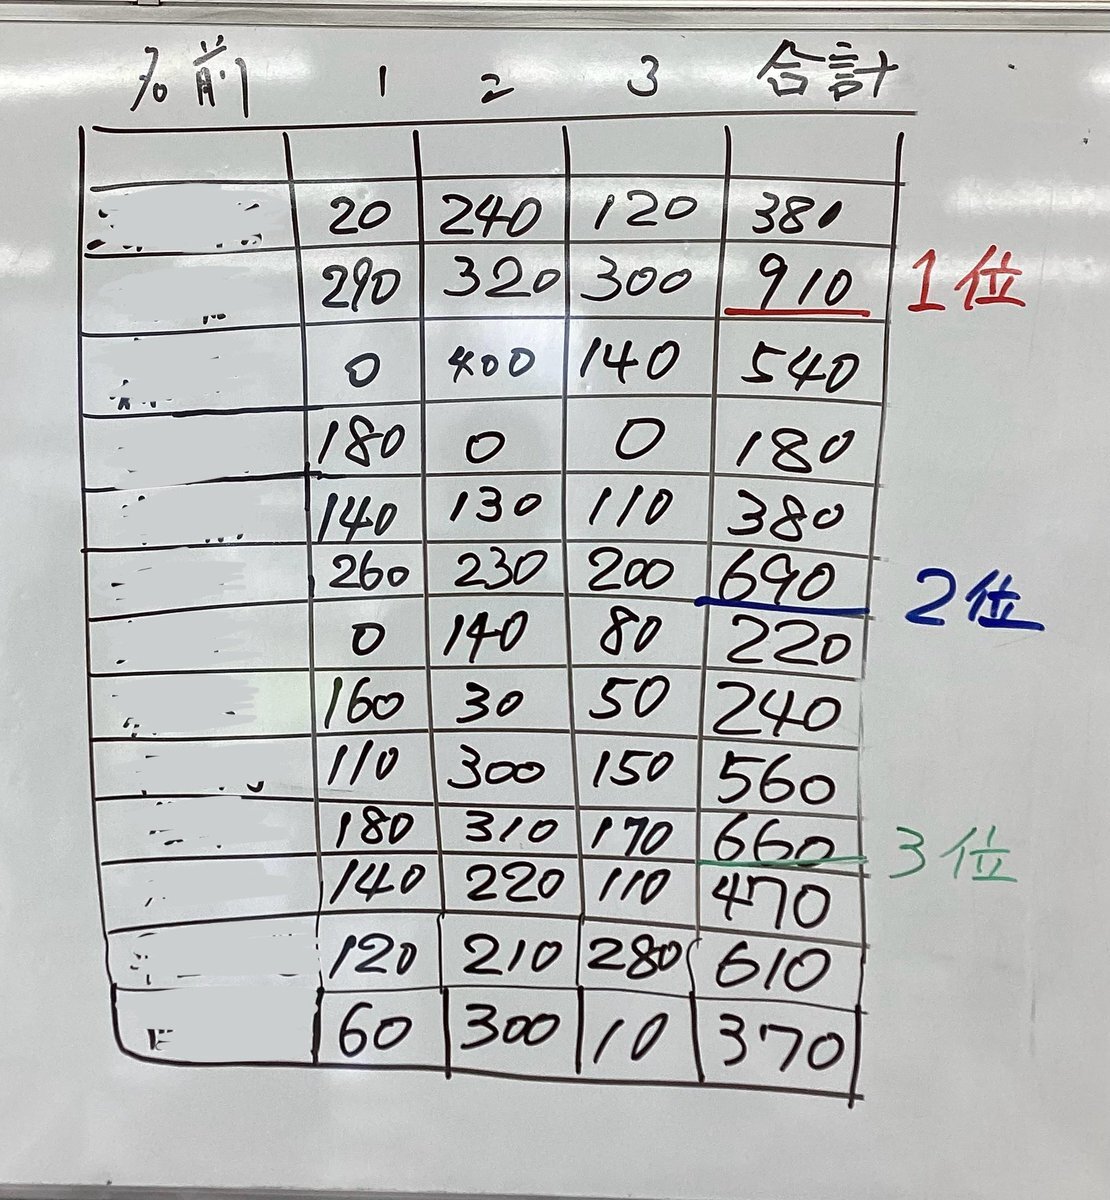 名前 1 2 3 合計
20 240 120 380
290 320 300 910 1位
0 400 140 540
180 0 0 180
140 130 110 380
260 230 200 690 2位
0 140 80 220
160 30 50 240
110 300 150 560
180 310 170 660 3位
140 220 110 470
120 210 280 610
60 300 10 370